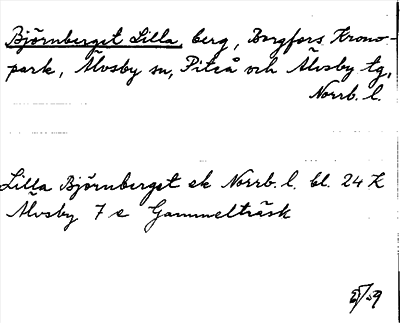 Björnberget Lilla, berg, Borgfors Krono-
park, Älvsby sn, Piteå och Älvsby tg,
Norrb. l.
Lilla Björnberget ek Norrb. l. bl. 24 K
Älvsby 7 e Gammelträsk